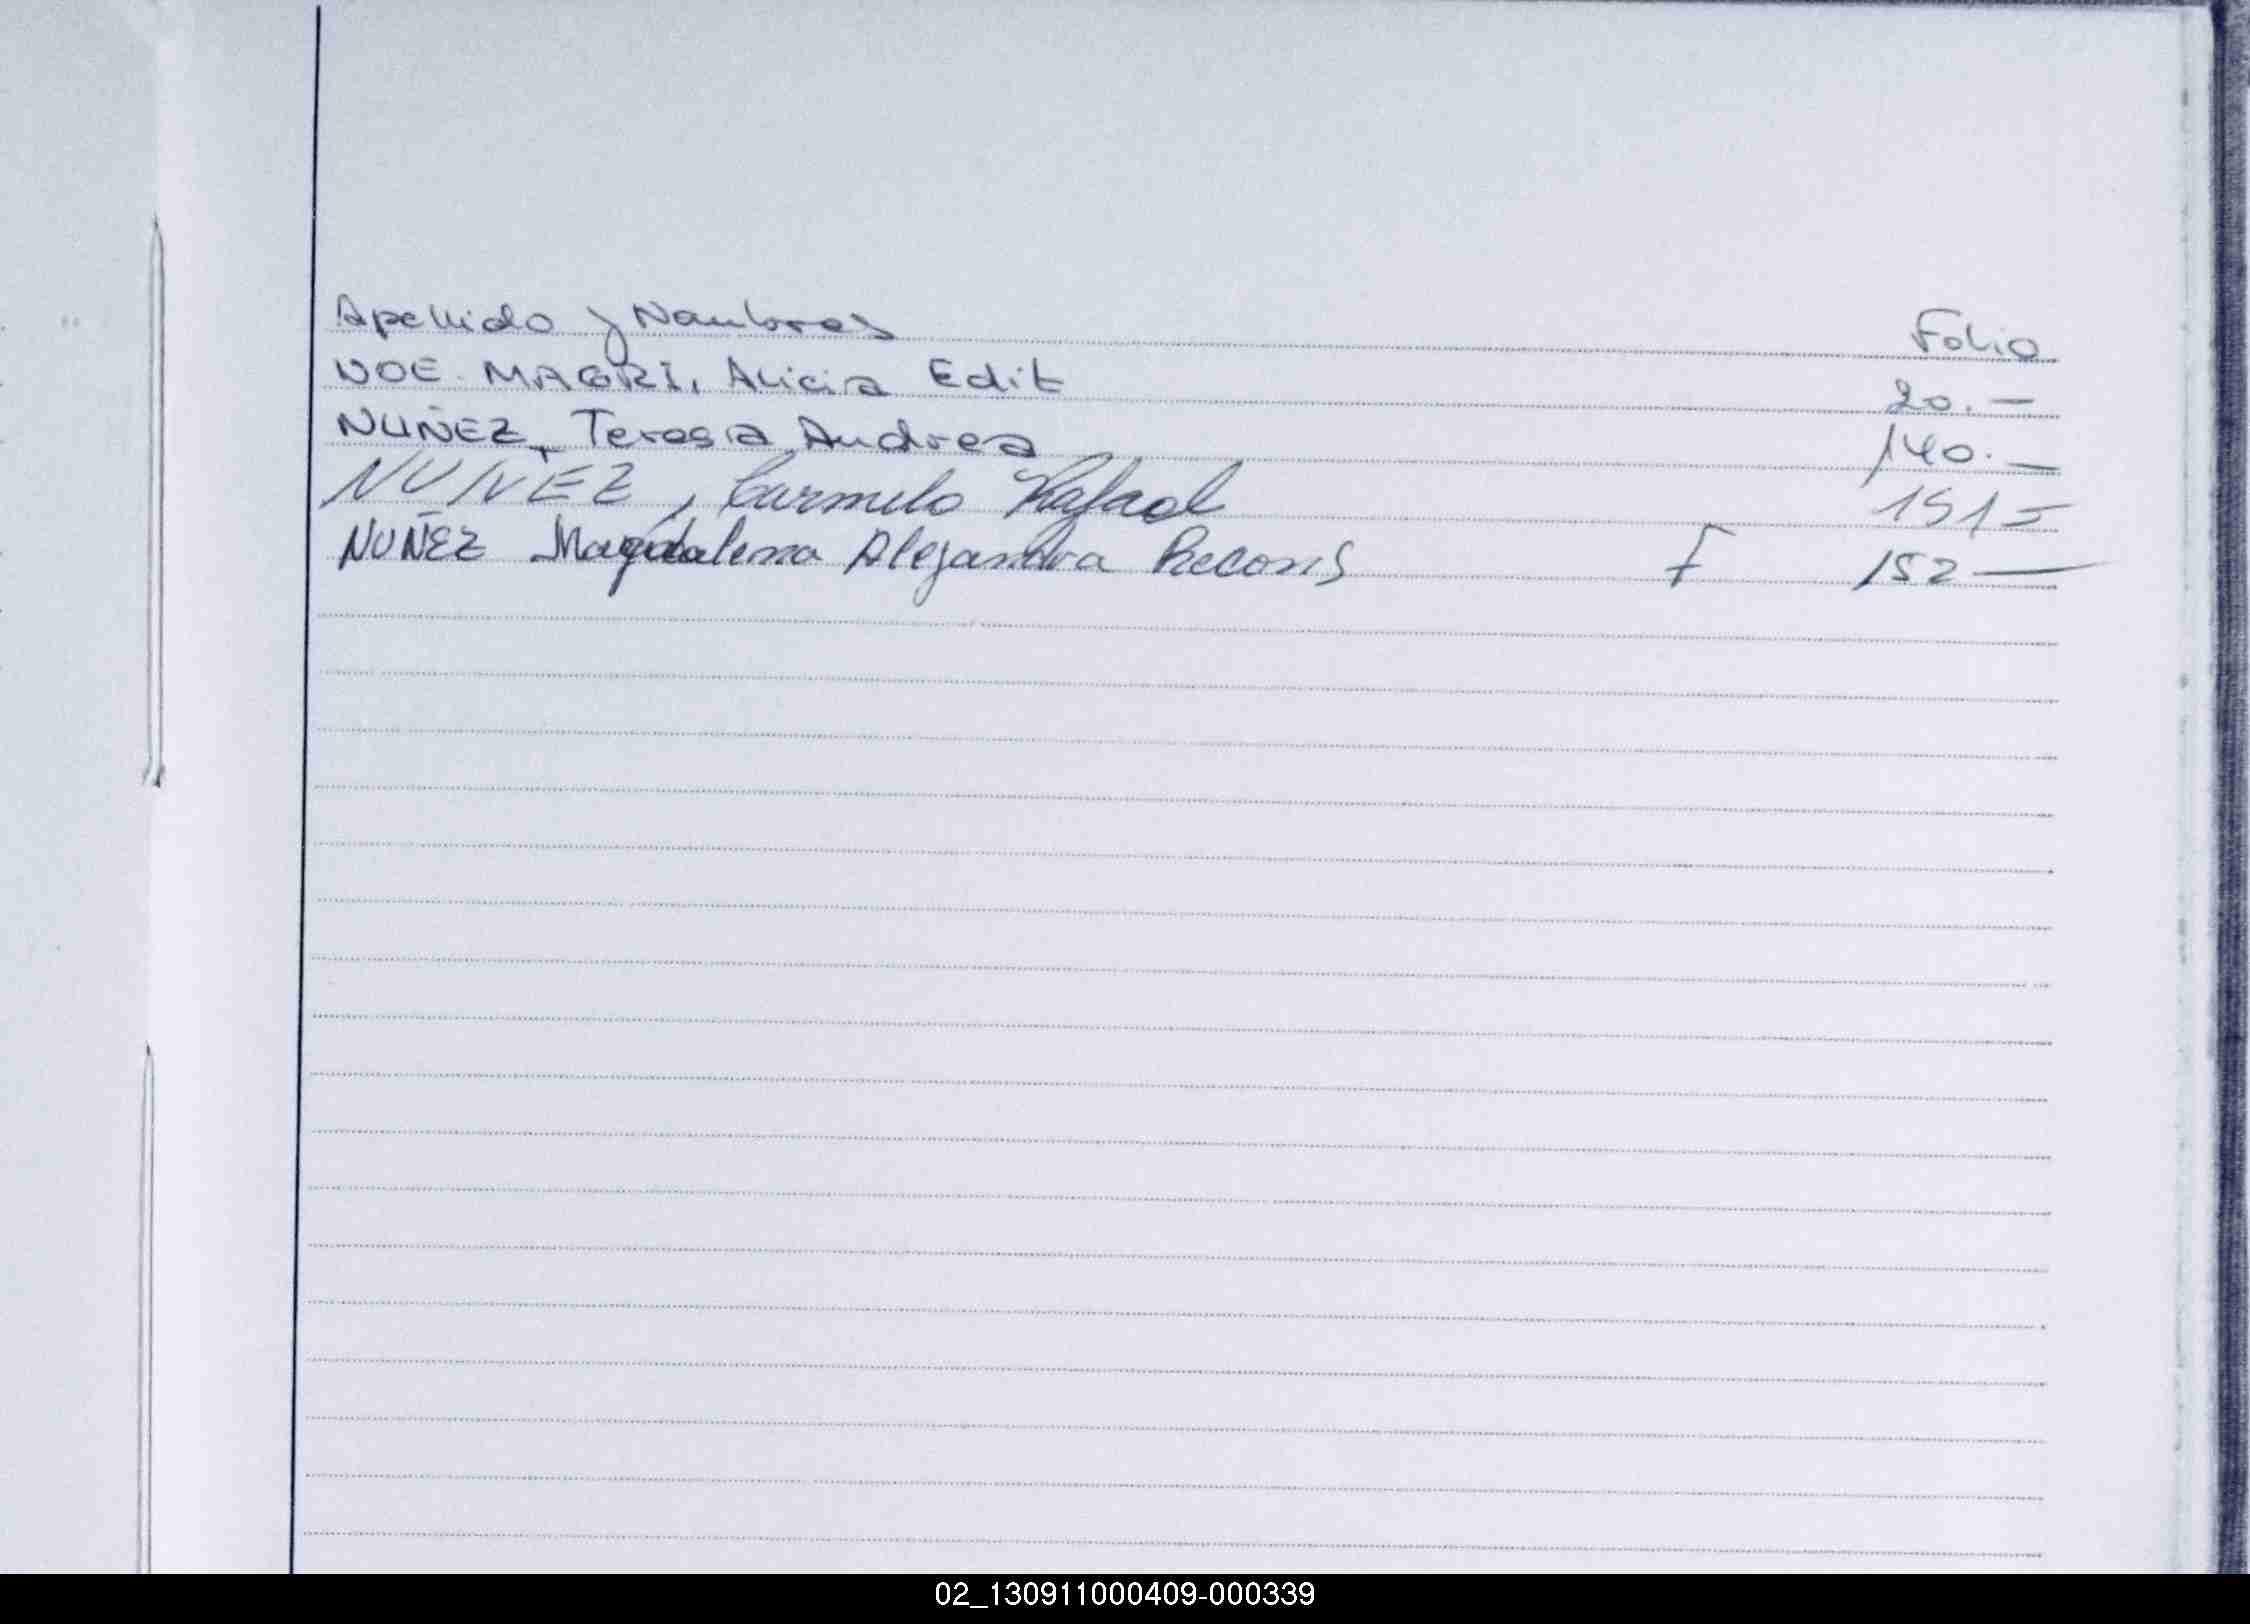 Apellido y Nombres Folio
NOE MAGRI, Alicia Edit 20.—
NUÑEZ, Teresa Andrea 140.—
NUÑEZ, Carmelo Rafael 151—
NUÑEZ Magdalena Alejandra F 152—
02_130911000409-000339